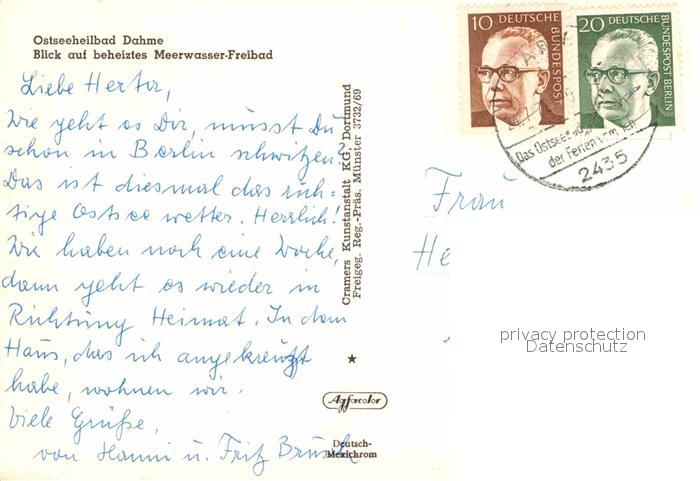 Ostseeheilbad Dahme
Blick auf beheiztes Meerwasser-Freibad
Liebe Herta,
Wie geht es Dir, müsst Du
schon in Berlin schwitzen?
Das ist diesmal das rich=
tige Ostseewetter. Herrlich!
Wir haben noch eine Woche,
dann geht es wieder in
Richtung Heimat. In dem
Haus, das ich angekreuzt
habe, wohnen wir.
Viele Grüße,
von Hanni u. Fritz
Cramers Kunstanstalt KG, Dortmund
Freigeg. Reg.-Präs. Münster 3732/69
Agfacolor
Deutsch-
Mexichrom
10 DEUTSCHE
BUNDESPOST
20 DEUTSCHE
BUNDESPOST BERLIN
Das Ostseebad
der Ferien
2435
Frau
He
privacy protection
Datenschutz